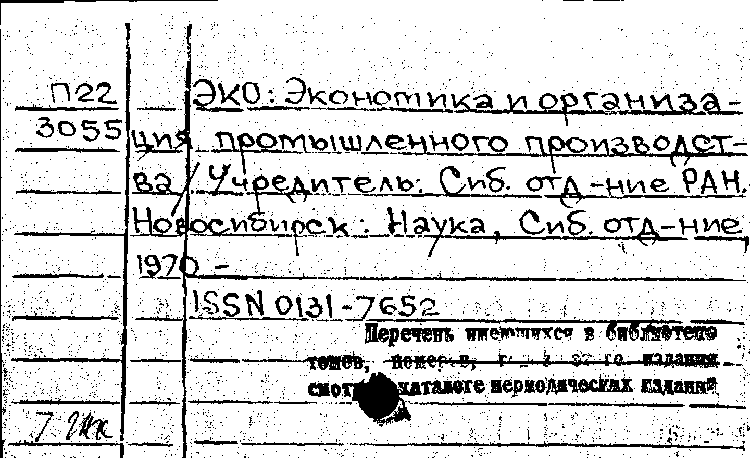 П22 ЭКО: Экономика и организа-
3055 ция промышленного производст-
ва / Учредитель: Сиб. отд-ние РАН.
Новосибирск: Наука, Сиб. отд-ние,
1970 -
ISSN 0131-7652
Перечень имеющихся в библиотеке
томов, номеров, издания
смотри каталоге периодических изданий